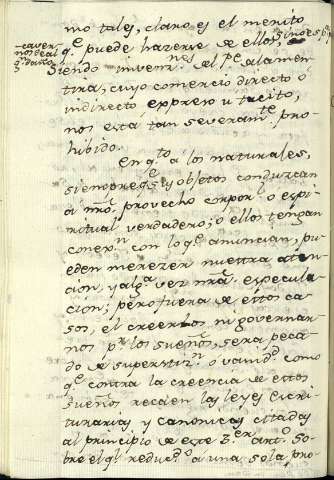 mo tales, claro es el merito
q.e puede hazerse de ellos, sino es p.r
siendo invenz.nes del P.e de la men-
tira, cuyo comercio directo ó
indirecto, expreso u tacito,
nos está tan severam.te pro-
hibido.
En q.to a los naturales,
siempre q.e sus objetos conduzcan
a nro. provecho corpor.l o espi-
ritual verdadero; o ellos tengan
conex.n con lo q.e anuncian, pu-
eden merezer nuestra aten-
cion, y alg.a vez nra. especula-
cion; pero fuera de estos ca-
sos, el creerlos ni governar-
nos p.r los sueños, será peca-
do de superstiz.n o vanid.d como
q.e contra la creencia de estos
sueños recaen las leyes escri-
turarias y canonicas citadas
al principio de este 3.er art.o so-
bre el q.l reduc.do a una sola pro-